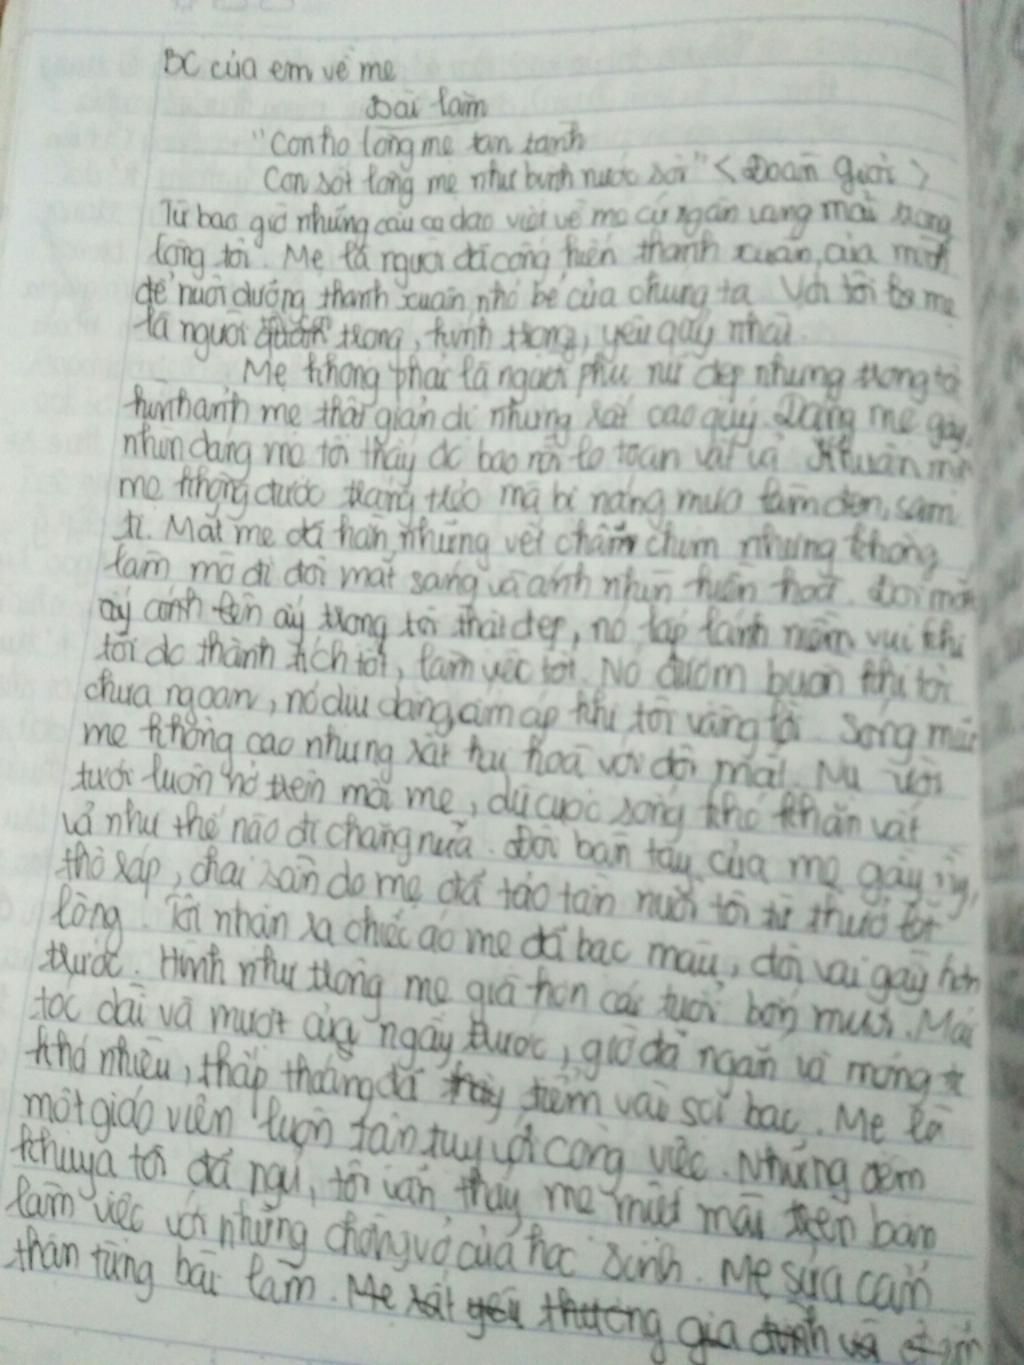 BC của em về mẹ
Bài làm
"Con ho lòng mẹ tan tành
Con sốt lòng mẹ như bình nước sôi" < Đoàn Giỏi >
Từ bao giờ những câu ca dao viết về mẹ cứ ngân vang mãi trong
lòng tôi. Mẹ là người đã cống hiến thanh xuân của mình
để nuôi dưỡng thanh xuân nhỏ bé của chúng ta. Với tôi mẹ
là người trọng, kính trọng, yêu quý nhất.
Mẹ không phải là người phụ nữ đẹp nhưng trong tôi
hình ảnh mẹ thật giản dị nhưng rất cao quý. Dáng mẹ gầy,
nhìn dáng mẹ tôi thấy đc bao nỗi lo toan vất vả. Khuôn mặt
mẹ không được trắng trẻo mà bị nắng mưa làm đen, sạm
đi. Mắt mẹ đã hằn những vết chân chim nhưng không
làm mờ đi đôi mắt sáng và ánh nhìn hiền hoà. Đôi mắt
ấy ánh lên ấy trong tôi thật đẹp, nó lấp lánh niềm vui khi
tôi đc thành tích tốt, làm việc tốt. Nó đượm buồn khi tôi
chưa ngoan, nó dịu dàng ấm áp khi tôi vâng lời. Sống mũi
mẹ không cao nhưng rất hài hoà với đôi mắt. Nụ cười
tươi luôn nở trên môi mẹ, dù cuộc sống khó khăn vất
vả như thế nào đi chăng nữa. Đôi bàn tay của mẹ gầy
thô ráp, chai sần do mẹ đã tảo tần nuôi tôi từ thuở lọt
lòng. Tôi nhận ra chiếc áo mẹ đã bạc màu, đôi vai gầy hơn
trước. Hình như trông mẹ già hơn cái tuổi bốn mươi. Mái
tóc dài và mượt của ngày trước, giờ đã ngắn và mỏng
khá nhiều, thấp thoáng đã thấy điểm vài sợi bạc. Mẹ là
một giáo viên luôn tận tuỵ với công việc. Những đêm
khuya tôi đã ngủ, tôi vẫn thấy mẹ miệt mài trên bàn
làm việc với những chồng vở của học sinh. Mẹ sửa cẩn
thận từng bài làm. Mẹ rất yêu thương gia đình và